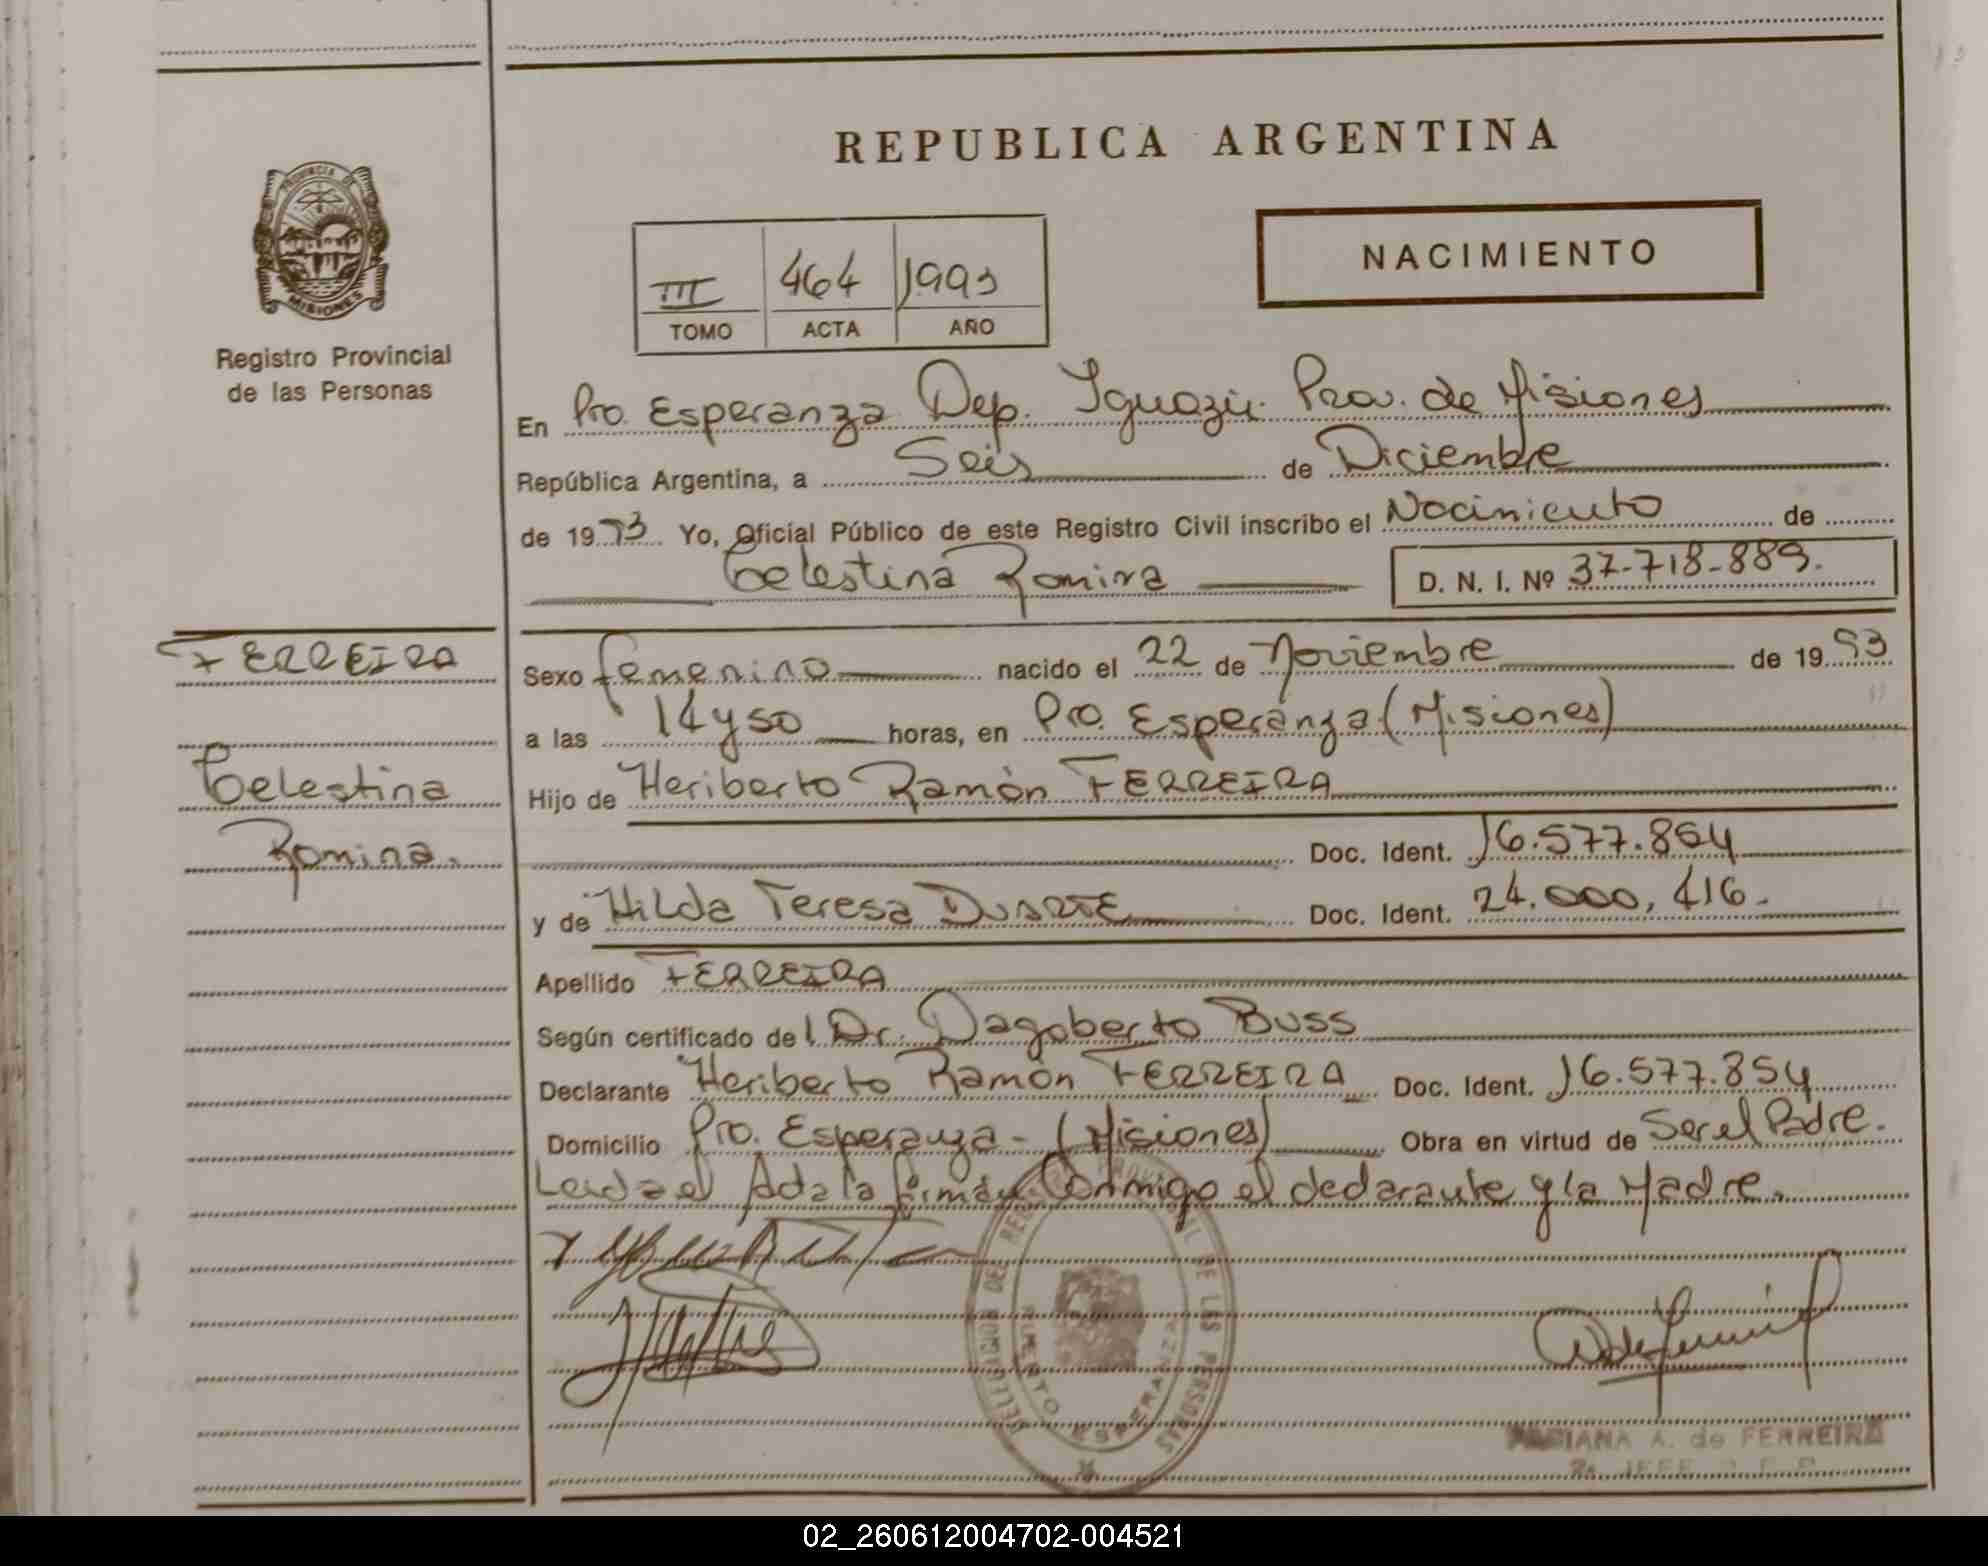 REPUBLICA ARGENTINA
PROVINCIA DE
MISIONES
Registro Provincial
de las Personas
NACIMIENTO
III 464 1993
TOMO ACTA AÑO
En Pto. Esperanza Dep. Iguazú Prov. de Misiones
República Argentina, a Seis de Diciembre
de 1993 Yo, Oficial Público de este Registro Civil inscribo el Nacimiento de
Celestina Romina D. N. I. Nº 37-718-889.
FERREIRA
Celestina
Romina.
Sexo femenino nacido el 22 de Noviembre de 1993
a las 14 y 50 horas, en Pto. Esperanza (Misiones)
Hijo de Heriberto Ramón FERREIRA
Doc. Ident. 16.577.854
y de Hilda Teresa DUARTE Doc. Ident. 24.000,416.
Apellido FERREIRA
Según certificado del Dr. Dagoberto Buss
Declarante Heriberto Ramón FERREIRA Doc. Ident. 16.577.854
Domicilio Pto. Esperanza - (Misiones) Obra en virtud de Ser el Padre.
Leida el Acta la firman Conmigo el declarante y la Madre.
PUERTO ESPERANZA
A. de FERREIRA
02_260612004702-004521